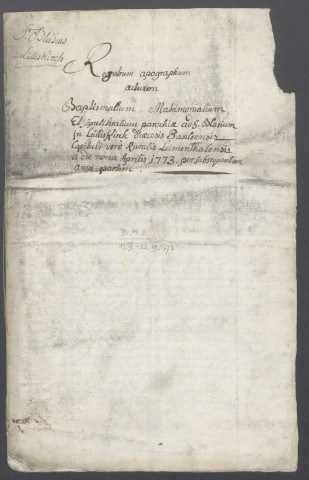 St. Blasius
Lutterkirch
Registrum apographum
actuum
Baptismalium, Matrimonialium
Et Sepulchralium parochiæ ad S. Blasium
in Diœcesis Basileensis
Capituli vero Ruralis Leimenthalensis
a die nona Aprilis 1773. per subsequentem
anni partem.
B. M. S.